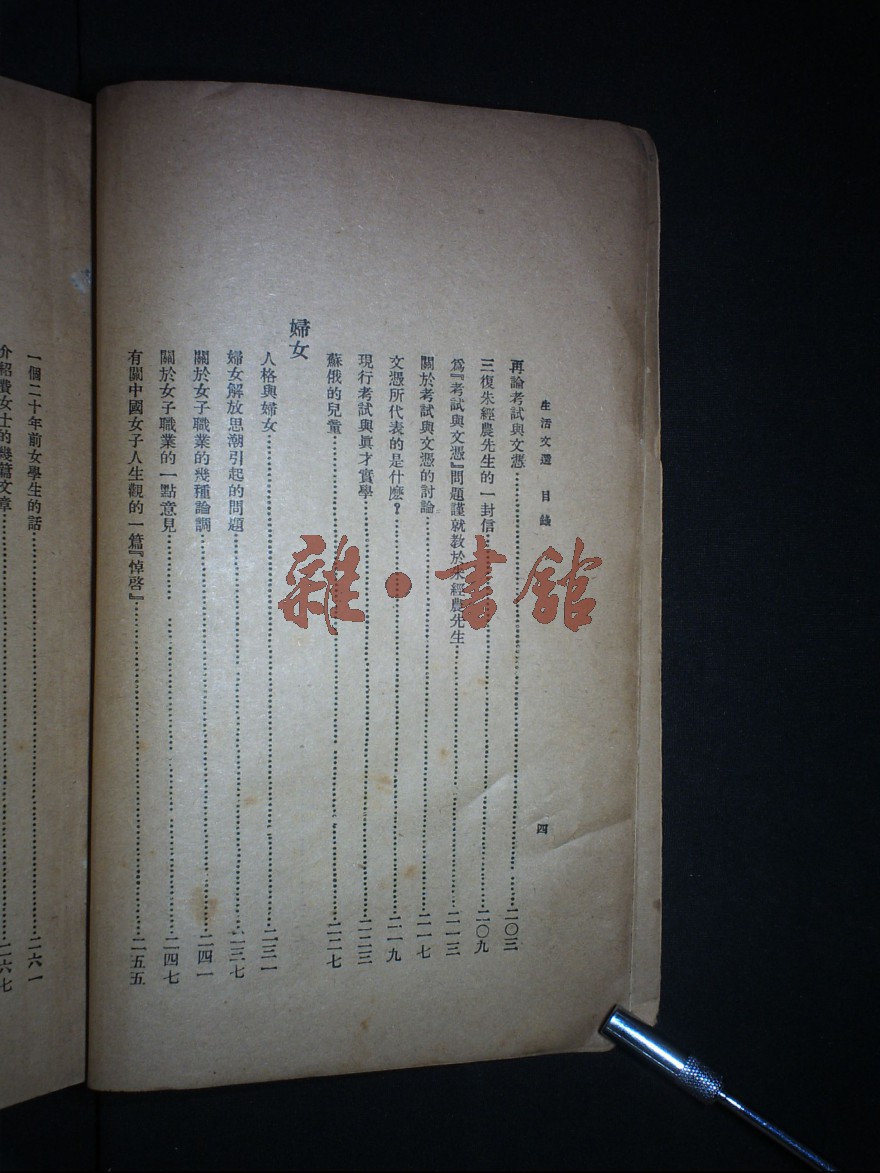 生活文選 目錄
四
再論考試與文憑……二〇三
三復朱經農先生的一封信……二〇九
為『考試與文憑』問題謹就教於朱經農先生……二一三
關於考試與文憑的討論……二一七
文憑所代表的是什麼？……二一九
現行考試與眞才實學……二二三
蘇俄的兒童……二二七
婦女
人格與婦女……二三一
婦女解放思潮引起的問題……二三七
關於女子職業的幾種論調……二四一
關於女子職業的一點意見……二四七
有關中國女子人生觀的一篇『悼啓』……二五五
一個二十年前女學生的話……二六一
介紹費女士的幾篇文章……二六七
雜·書館